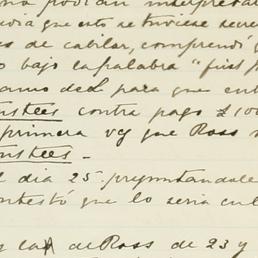 na podían interpretar
dia que esto se tuviese secre
es de cabilar, comprendí q
o bajo la palabra "first p
amo decl para que ent
ustees contra pago £100
primera vez que Ross
ustees -
l dia 25. preguntandole
ontestó que lo seria cu
y la de Ross de 23 y